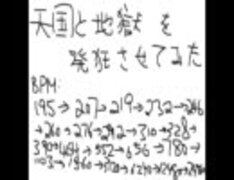 天国と地獄を
発狂させてみた
BPM:
195→207→219→232→246
→260→276→292→310→328→
390→464→552→656→780→